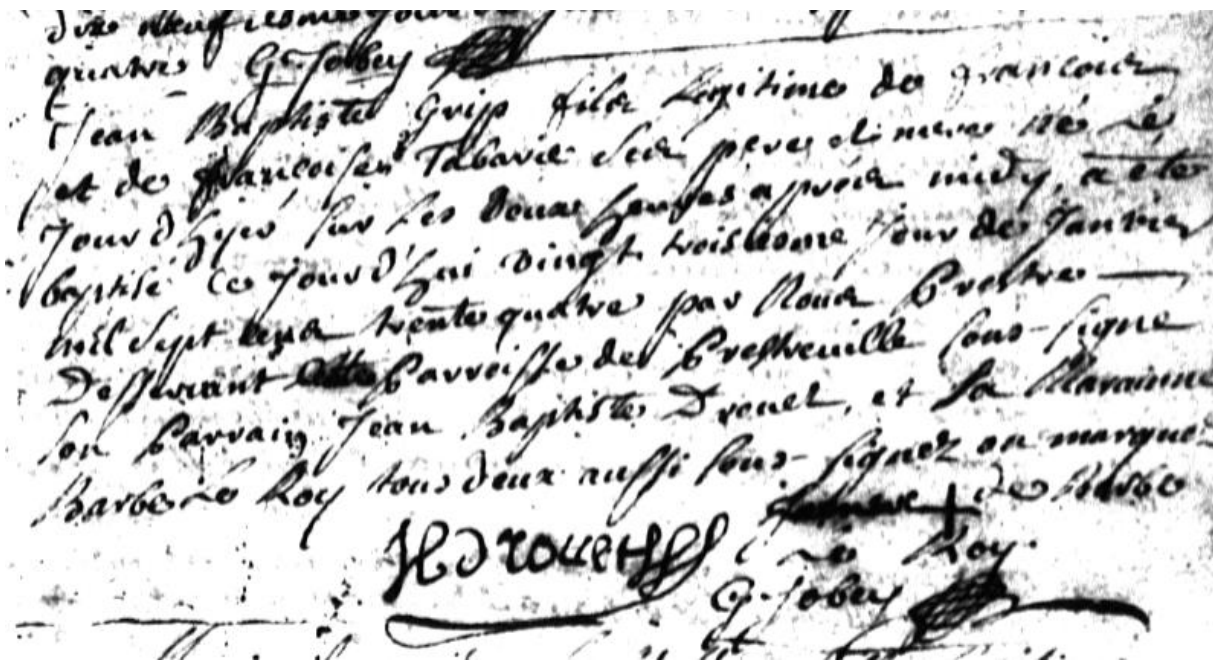 dix neufiesme jour de
quatre G. Jobey
Jean Baptiste Grip fils legitime de francois
et de francoises Tabarie ses pere et mere né Le
Jour d'hyer sur Les douze heures aprés midy, a été
baptisé ce jourd'hui vingt troisiesme jour de Janvier
mil sept cens trente quatre par Nous Prestre
Desservant cette Parroisse de Prestreville sous-signé
son Parrain Jean Baptiste Drouet, et sa Maraine
Barbe Le Roy tous deux aussi sous-signez ou marquez
+ de Barbe
Drouet Le Roy
G. Jobey